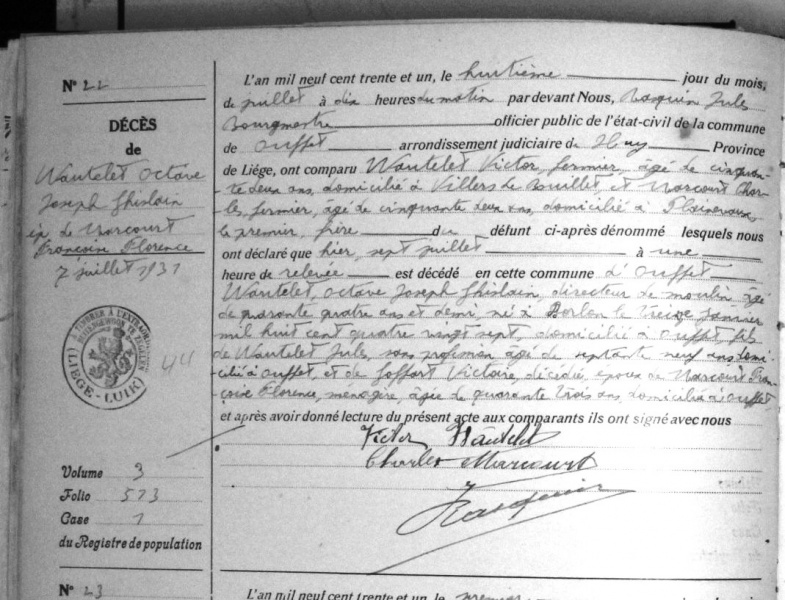 N° 22
DÉCÈS
de
Wautelet Octave
Joseph Ghislain
ép. de Marcourt
Françoise Florence
7 juillet 1931
TIMBRE A L'EXTRAORDINAIRE
(LIÈGE-LUIK)
44
Volume 3
Folio 573
Case 1
du Registre de population
L'an mil neuf cent trente et un, le huitième jour du mois,
de juillet à dix heures du matin par devant Nous, Jules
Bourgmestre officier public de l'état-civil de la commune
de Ouffet arrondissement judiciaire de Huy Province
de Liége, ont comparu Wautelet Victor, fermier, âgé de cinquan-
te deux ans, domicilié à Villers le Bouillet et Marcourt Char-
les, fermier, âgé de cinquante deux ans, domicilié à Plainevaux,
le premier, frère du défunt ci-après dénommé lesquels nous
ont déclaré que hier, sept juillet à une
heure de relevée est décédé en cette commune d'Ouffet
Wautelet, Octave Joseph Ghislain, directeur de moulin, âgé
de quarante quatre ans et demi, né à Borlon le treize Janvier
mil huit cent quatre vingt sept, domicilié à Ouffet, fils
de Wautelet Jules, sans profession âgé de septante neuf ans domi-
cilié à Ouffet, et de Joffart Victoire, décédée, époux de Marcourt Fran-
çoise Florence, ménagère, âgée de quarante trois ans, domiciliée à Ouffet
et après avoir donné lecture du présent acte aux comparants ils ont signé avec nous
Victor Wautelet
Charles Marcourt
N° 23
L'an mil neuf cent trente et un, le premier